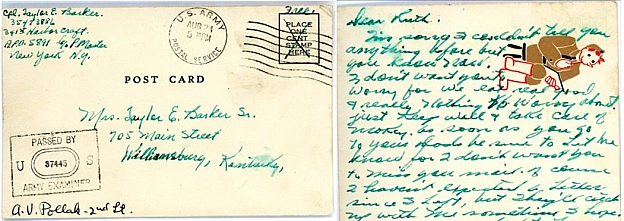 Cpl. Taylor E. Barker.
35491886
341st Harbor Craft.
A.P.O. 5891 % P. Master
New York N.Y.
Free.
U.S. ARMY
AUG 24
5 PM
POSTAL SERVICE
PLACE
ONE
CENT
STAMP
HERE
POST CARD
Mrs. Taylor E. Barker Sr.
705 Main Street
Williamsburg, Kentucky,
PASSED BY
U 37445 S
ARMY EXAMINER
A.V. Pollak - 2nd Lt.
Dear Ruth.
I'm sorry I couldn't tell you
anything before but
you know Now.
I don't want you to
worry for we eat real good
& really Nothing to Worry about
just keep well & take care of
Mokey. as soon as you go
to yours Mode be sure to let me
know for I don't want you
to miss you mail. of course
I haven't expected a letter
since I left, but they'll catch
up with me sometime I hope.